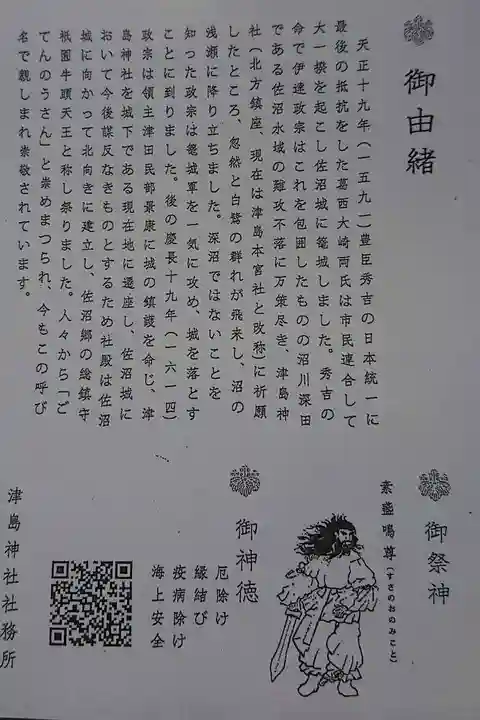 御由緒
天正十九年(一五九一)豊臣秀吉の日本統一に
最後の抵抗をした葛西大崎両氏は市民連合して
大一揆を起こし佐沼城に篭城しました。秀吉の
命で伊達政宗はこれを包囲したものの沼川深田
である佐沼水域の難攻不落に万策尽き、津島神
社(北方鎮座、現在は津島本宮社と改称)に祈願
したところ、忽然と白鷺の群れが飛来し、沼の
浅瀬に降り立ちました。深沼ではないことを
知った政宗は篭城軍を一気に攻め、城を落とす
ことに到りました。後の慶長十九年(一六一四)
政宗は領主津田民部景康に城の鎮護を命じ、津
島神社を城下である現在地に遷座し、佐沼城に
おいて今後謀反なきものとするため社殿は佐沼
城に向かって北向きに建立し、佐沼郷の総鎮守
祇園牛頭天王と称し祭りました。人々から「ご
てんのうさん」と崇めまつられ、今もこの呼び
名で親しまれ崇敬されています。
御祭神
素盞嗚尊(すさのおのみこと)
御神徳
厄除け
縁結び
疫病除け
海上安全
津島神社社務所